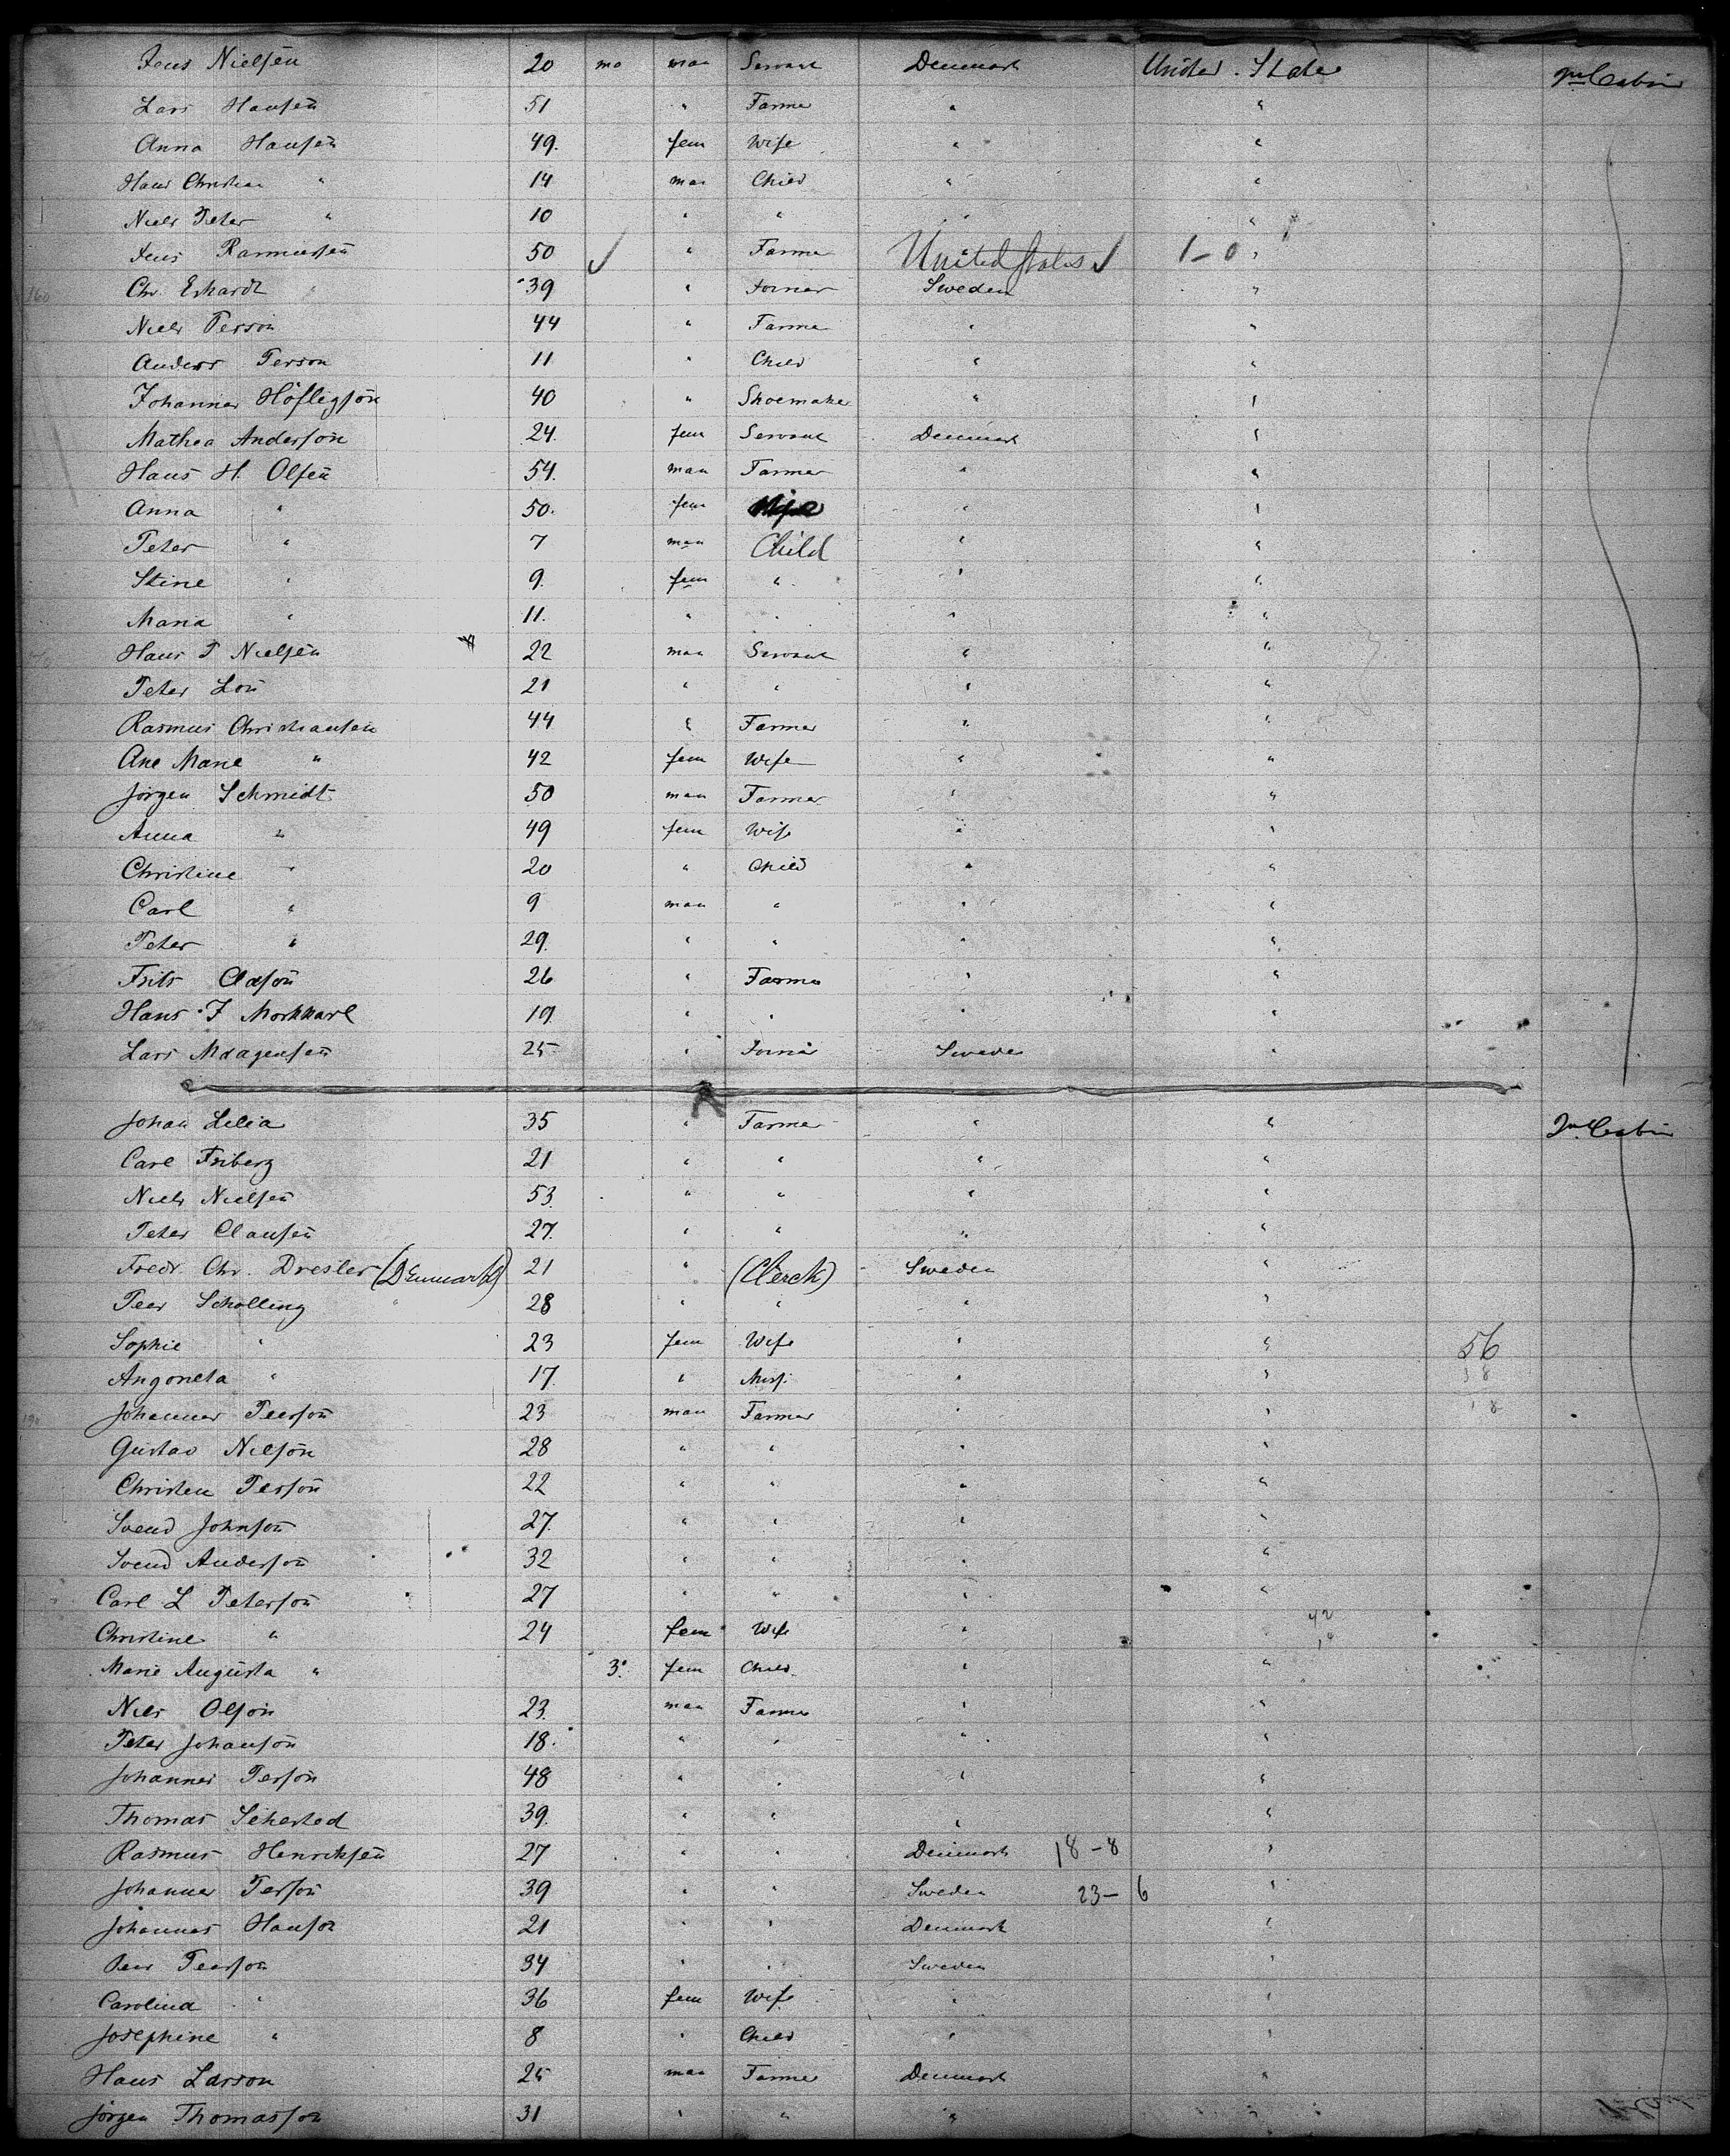 Jens Nielsen 20 mo man Servant Denmark United States In Cabin
Lars Hansen 51 " Farmer " "
Anna Hansen 49. fem Wife " "
Hans Christian " 14 man Child " "
Niels Peter " 10 " " " "
Jens Rasmussen 50 ✓ " Farmer United States ✓ 1-0 "
160 Chr. Erhardt " 39 " Joiner Sweden "
Niels Person 44 " Farmer " "
Anders Person 11 " Child " "
Johannes 40 " Shoemaker " "
Mathea Anderson 24. fem Servant Denmark "
Hans H. Olsen 54. man Farmer " "
Anna " 50. fem Wife " "
Peter " 7 man Child " "
Stine " 9. fem " " "
Maria " 11. " " " "
Hans P Nielsen 22 man Servant " "
Peter 21 " " " "
Rasmus Christiansen 44 " Farmer " "
Ane Marie " 42 fem Wife " "
Jörgen Schmidt 50 man Farmer " "
Anna " 49 fem Wife " "
Christine " 20 " Child " "
Carl " 9 man " " "
Peter " 29. " " " "
Frits 26 " Farmer " "
Hans J 19. " " " "
Lars Maagensen 25 " Joiner Sweden "
Johan Lilia 35 " Farmer " " In Cabin
Carl Friberg 21 " " " "
Niels Nielsen 53. " " " "
Peter Clausen 27. " " " "
Fredr. Chr. Dresler (Denmark) 21 " (Clerck) Sweden "
Peer Scholling 28 " " " "
Sophie " 23 fem Wife " " 56
Angoneta " 17. " " " 38
190 Johannes Peerson 23 man Farmer " " 18
Gustav Nilson 28 " " " "
Christen Person 22 " " " "
Svend Johnson 27. " " " "
Svend Anderson 32 " " " "
Carl L Peterson 27 " " " "
Christine " 24 fem Wife " "
Marie Augusta " 3. fem Child " "
Niels Olson 23. man Farmer " "
Peter Johanson 18. " " " "
Johannes Person 48 " " " "
Thomas Sehested 39. " " " "
Rasmus Henriksen 27 " " Denmark 18-8 "
Johannes Person 39 " " Sweden 23-6 "
Johannes Hanson 21 " " Denmark "
Peer Peerson 34 " " Sweden "
Carolina " 36 fem Wife " "
Josephine " 8 " Child " "
Hans Larson 25 man Farmer Denmark "
Jörgen Thomasson 31 " " " "